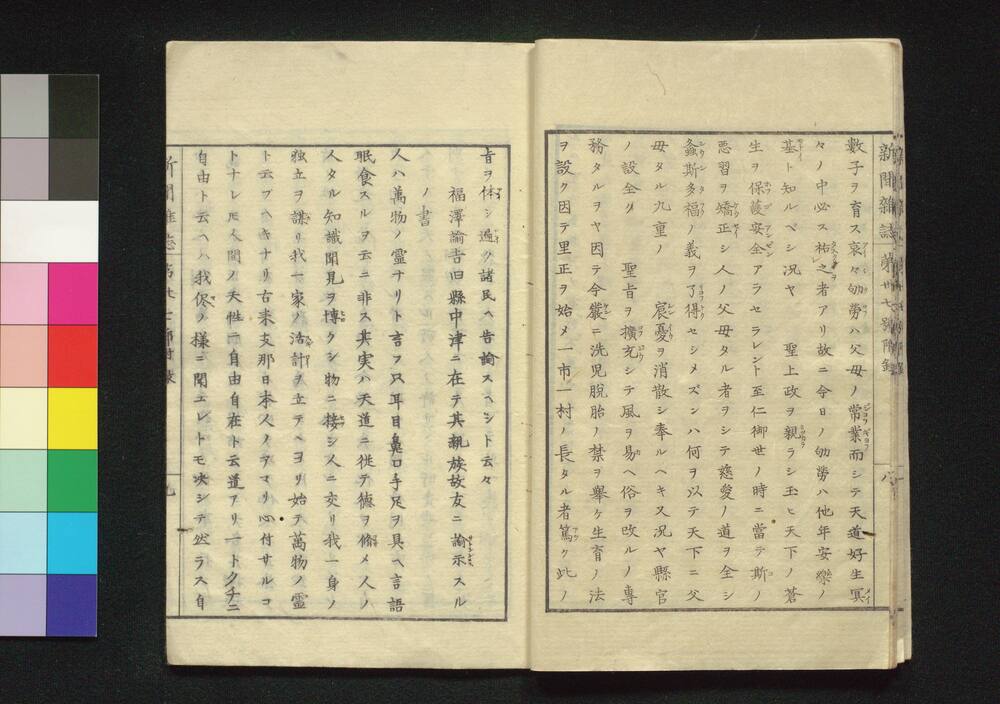 新聞雜誌 第卅七號附録 八
數子ヲ育ス哀々劬勞ハ父母ノ常業而シテ天道好生冥
々ノ中必ス祐之者アリ故ニ今日ノ劬勞ハ他年安樂ノ
基ト知ルベシ況ヤ 聖上政ヲ親ラシ玉ヒ天下ノ蒼
生ヲ保護安全アラセラレント至仁御世ノ時ニ當テ斯ノ
惡習ヲ矯正シ人ノ父母タル者ヲシテ慈愛ノ道ヲ全シ
螽斯多福ノ義ヲ了得セシメズンハ何ヲ以テ天下ニ父
母タル九重ノ 宸憂ヲ消散シ奉ルヘキス況ヤ縣官
ノ設全ク 聖旨ヲ擴充シテ風ヲ易ヘ俗ヲ改ルノ專
務タルヲヤ因テ今嚴ニ洗児脱胎ノ禁ヲ舉ケ生育ノ法
ヲ設ク因テ里正ヲ始メ一市一村ノ長タル者篤ク此ノ
旨ヲ体シ遍ク諸民ヘ告諭スヘシト云々
福澤諭吉旧縣中津ニ在テ其親族故友ニ諭示スル
ノ書
人ハ萬物ノ靈ナリト言フ只耳目鼻口手足ヲ具ヘ言語
眠食スルヲ云ニ非ス其実ハ天道ニ従テ德ヲ脩メ人ノ
人タル知識聞見ヲ博クシ物ニ接シ人ニ交リ我一身ノ
独立ヲ謀リ我一家ノ活計ヲ立テヘヨリ始テ萬物ノ靈
ト云フヘキナリ古来支那日本人ノアマリ心付サルコ
トナレ𪜈人間ノ天性ニ自由自在ト云道アリ一トクチニ
自由ト云ヘハ我侭ノ様ニ聞エレトモ决シテ然ラス自
新聞雜誌 第卅七號附録 九